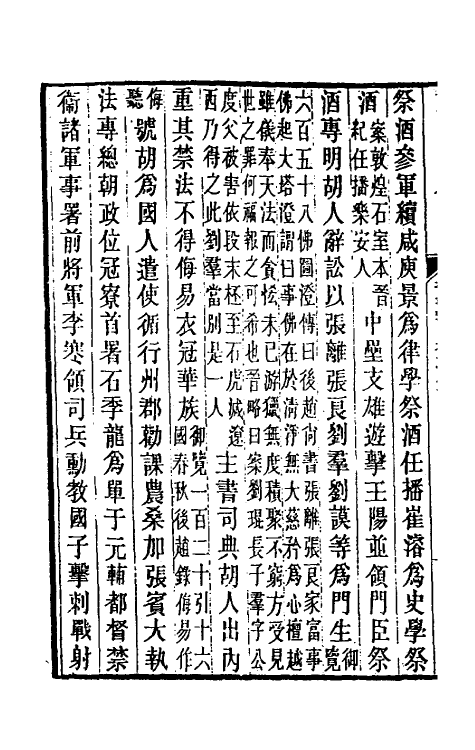 祭酒參軍續咸庾景爲律學祭酒任播崔濬爲史學祭
酒案敦煌石室本晉紀任播樂安人中壘支雄遊擊王陽並領門臣祭
酒專明胡人辭訟以張離張良劉羣劉謨等爲門生御覽
六百五十八佛圖澄傳曰後趙尚書張離張良家富事
佛起大塔澄謂曰事佛在於清淨無大慈矜爲心檀越
雖儀奉天法而貪恡未已游獵無度積聚不窮方受見
世之罪何福報之可希也晉略曰案劉琨長子羣字公
度父被害依段末柸至石虎滅遼西乃得之此劉羣當別是一人主書司典胡人出內
重其禁法不得侮易衣冠華族御覽一百二十引十六國春秋後趙錄侮易作
侮聽號胡爲國人遣使循行州郡勸課農桑加張賓大執
法專總朝政位冠寮首署石季龍爲單于元輔都督禁
衞諸軍事署前將軍李寒領司兵勳教國子擊刺戰射